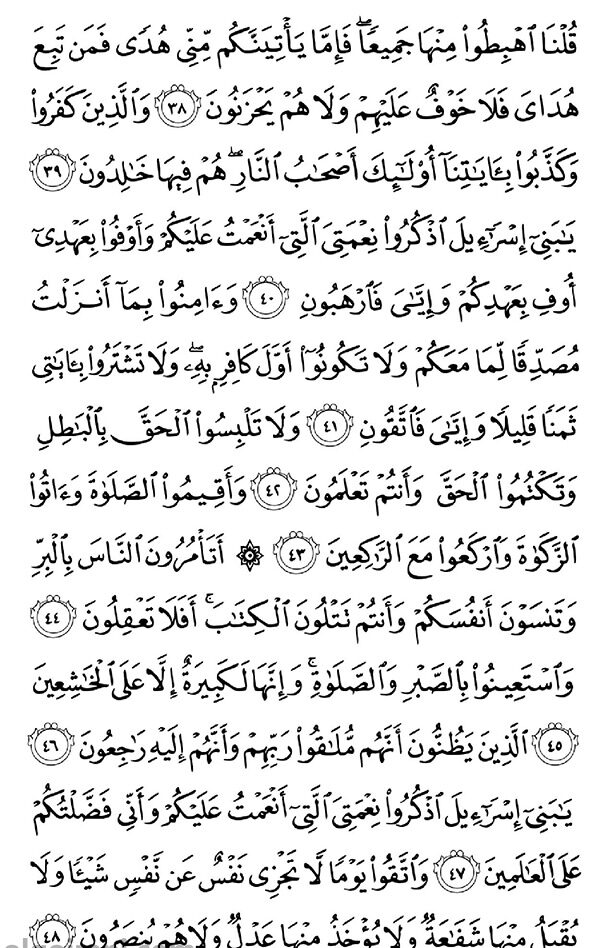 قُلْنَا ٱهْبِطُوا۟ مِنْهَا جَمِيعًا ۖ فَإِمَّا يَأْتِيَنَّكُم مِّنِّى هُدًى فَمَن تَبِعَ
هُدَاىَ فَلَا خَوْفٌ عَلَيْهِمْ وَلَا هُمْ يَحْزَنُونَ ٣٨ وَٱلَّذِينَ كَفَرُوا۟
وَكَذَّبُوا۟ بِـَٔايَـٰتِنَآ أُو۟لَـٰٓئِكَ أَصْحَـٰبُ ٱلنَّارِ ۖ هُمْ فِيهَا خَـٰلِدُونَ ٣٩
يَـٰبَنِىٓ إِسْرَٰٓءِيلَ ٱذْكُرُوا۟ نِعْمَتِىَ ٱلَّتِىٓ أَنْعَمْتُ عَلَيْكُمْ وَأَوْفُوا۟ بِعَهْدِىٓ
أُوفِ بِعَهْدِكُمْ وَإِيَّـٰىَ فَٱرْهَبُونِ ٤٠ وَءَامِنُوا۟ بِمَآ أَنزَلْتُ
مُصَدِّقًا لِّمَا مَعَكُمْ وَلَا تَكُونُوٓا۟ أَوَّلَ كَافِرٍۭ بِهِۦ ۖ وَلَا تَشْتَرُوا۟ بِـَٔايَـٰتِى
ثَمَنًا قَلِيلًا وَإِيَّـٰىَ فَٱتَّقُونِ ٤١ وَلَا تَلْبِسُوا۟ ٱلْحَقَّ بِٱلْبَـٰطِلِ
وَتَكْتُمُوا۟ ٱلْحَقَّ وَأَنتُمْ تَعْلَمُونَ ٤٢ وَأَقِيمُوا۟ ٱلصَّلَوٰةَ وَءَاتُوا۟
ٱلزَّكَوٰةَ وَٱرْكَعُوا۟ مَعَ ٱلرَّٰكِعِينَ ٤٣ ۞ أَتَأْمُرُونَ ٱلنَّاسَ بِٱلْبِرِّ
وَتَنسَوْنَ أَنفُسَكُمْ وَأَنتُمْ تَتْلُونَ ٱلْكِتَـٰبَ ۚ أَفَلَا تَعْقِلُونَ ٤٤
وَٱسْتَعِينُوا۟ بِٱلصَّبْرِ وَٱلصَّلَوٰةِ ۚ وَإِنَّهَا لَكَبِيرَةٌ إِلَّا عَلَى ٱلْخَـٰشِعِينَ
٤٥ ٱلَّذِينَ يَظُنُّونَ أَنَّهُم مُّلَـٰقُوا۟ رَبِّهِمْ وَأَنَّهُمْ إِلَيْهِ رَٰجِعُونَ ٤٦
يَـٰبَنِىٓ إِسْرَٰٓءِيلَ ٱذْكُرُوا۟ نِعْمَتِىَ ٱلَّتِىٓ أَنْعَمْتُ عَلَيْكُمْ وَأَنِّى فَضَّلْتُكُمْ
عَلَى ٱلْعَـٰلَمِينَ ٤٧ وَٱتَّقُوا۟ يَوْمًا لَّا تَجْزِى نَفْسٌ عَن نَّفْسٍ شَيْـًٔا وَلَا
يُقْبَلُ مِنْهَا شَفَـٰعَةٌ وَلَا يُؤْخَذُ مِنْهَا عَدْلٌ وَلَا هُمْ يُنصَرُونَ ٤٨